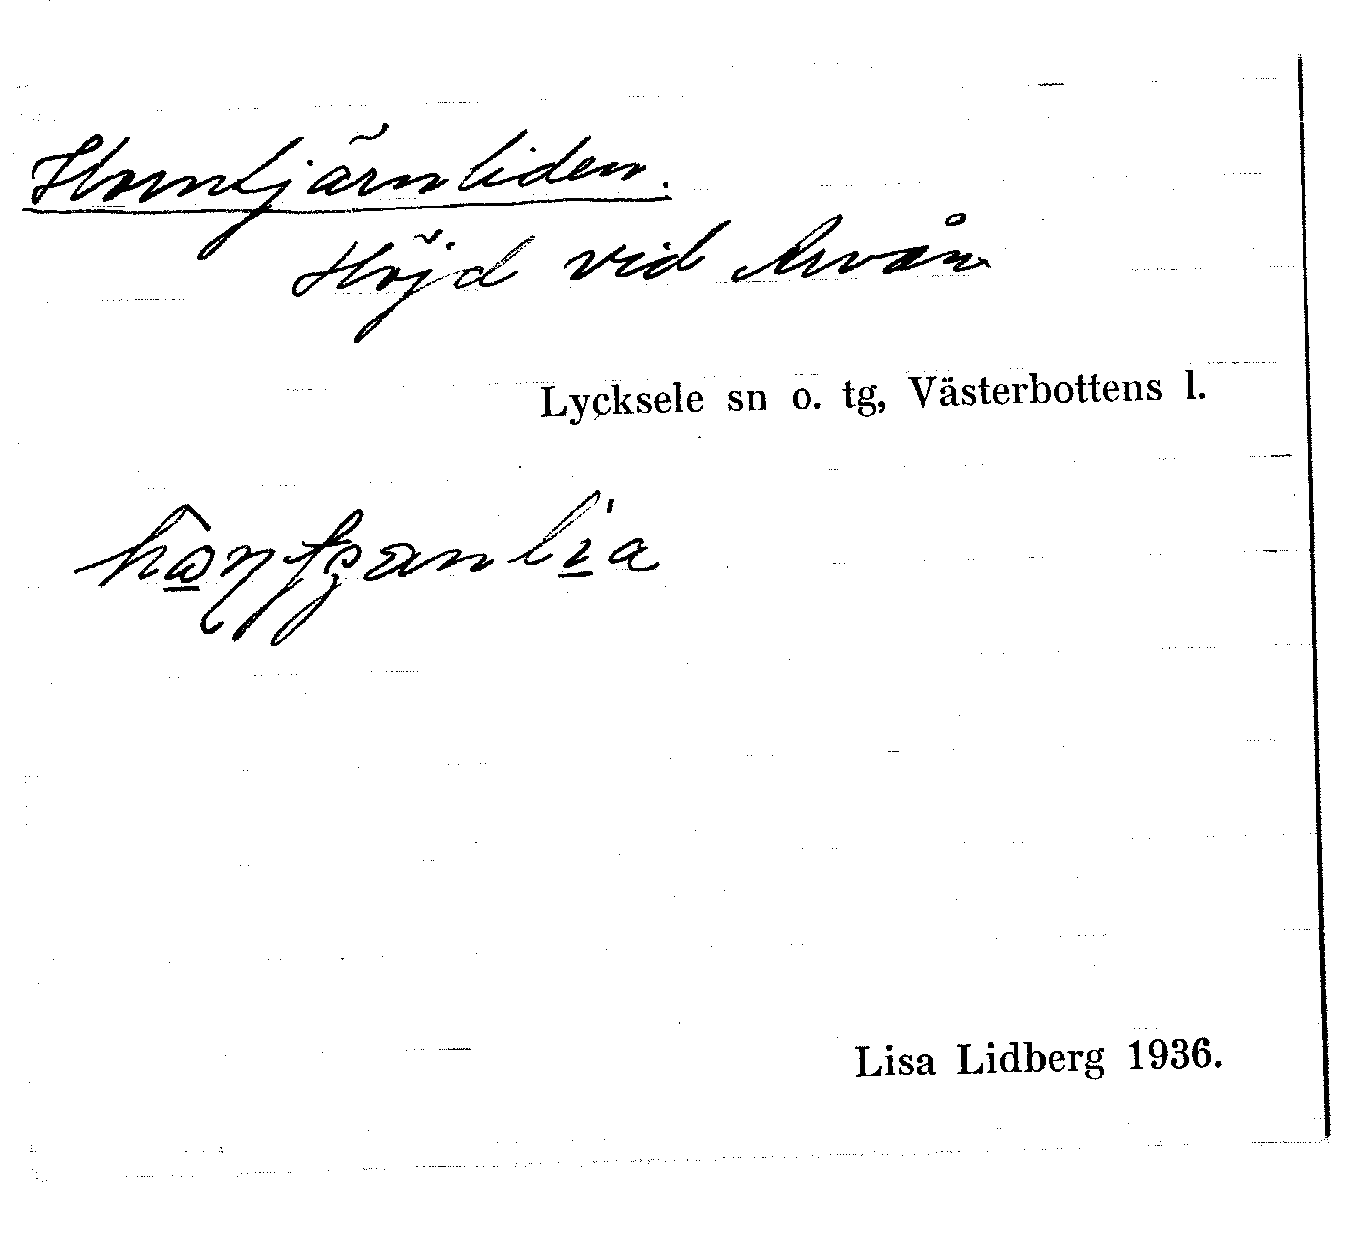 Horntjärnliden.
Höjd vid Arvån
Lycksele sn o. tg, Västerbottens l.
Lisa Lidberg 1936.